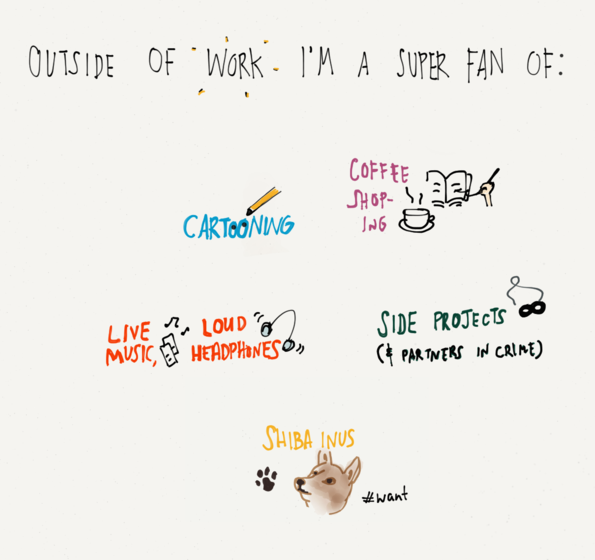 OUTSIDE OF WORK I'M A SUPER FAN OF:
COFFEE
SHOP-
ING
CARTOONING
LIVE
MUSIC,
LOUD
HEADPHONES
SIDE PROJECTS
(& PARTNERS IN CRIME)
SHIBA INUS
#want